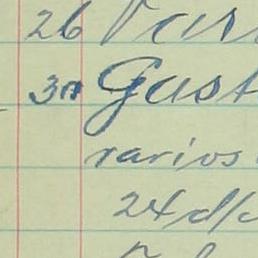 26 Var
30 Gast
varios
24 d/c